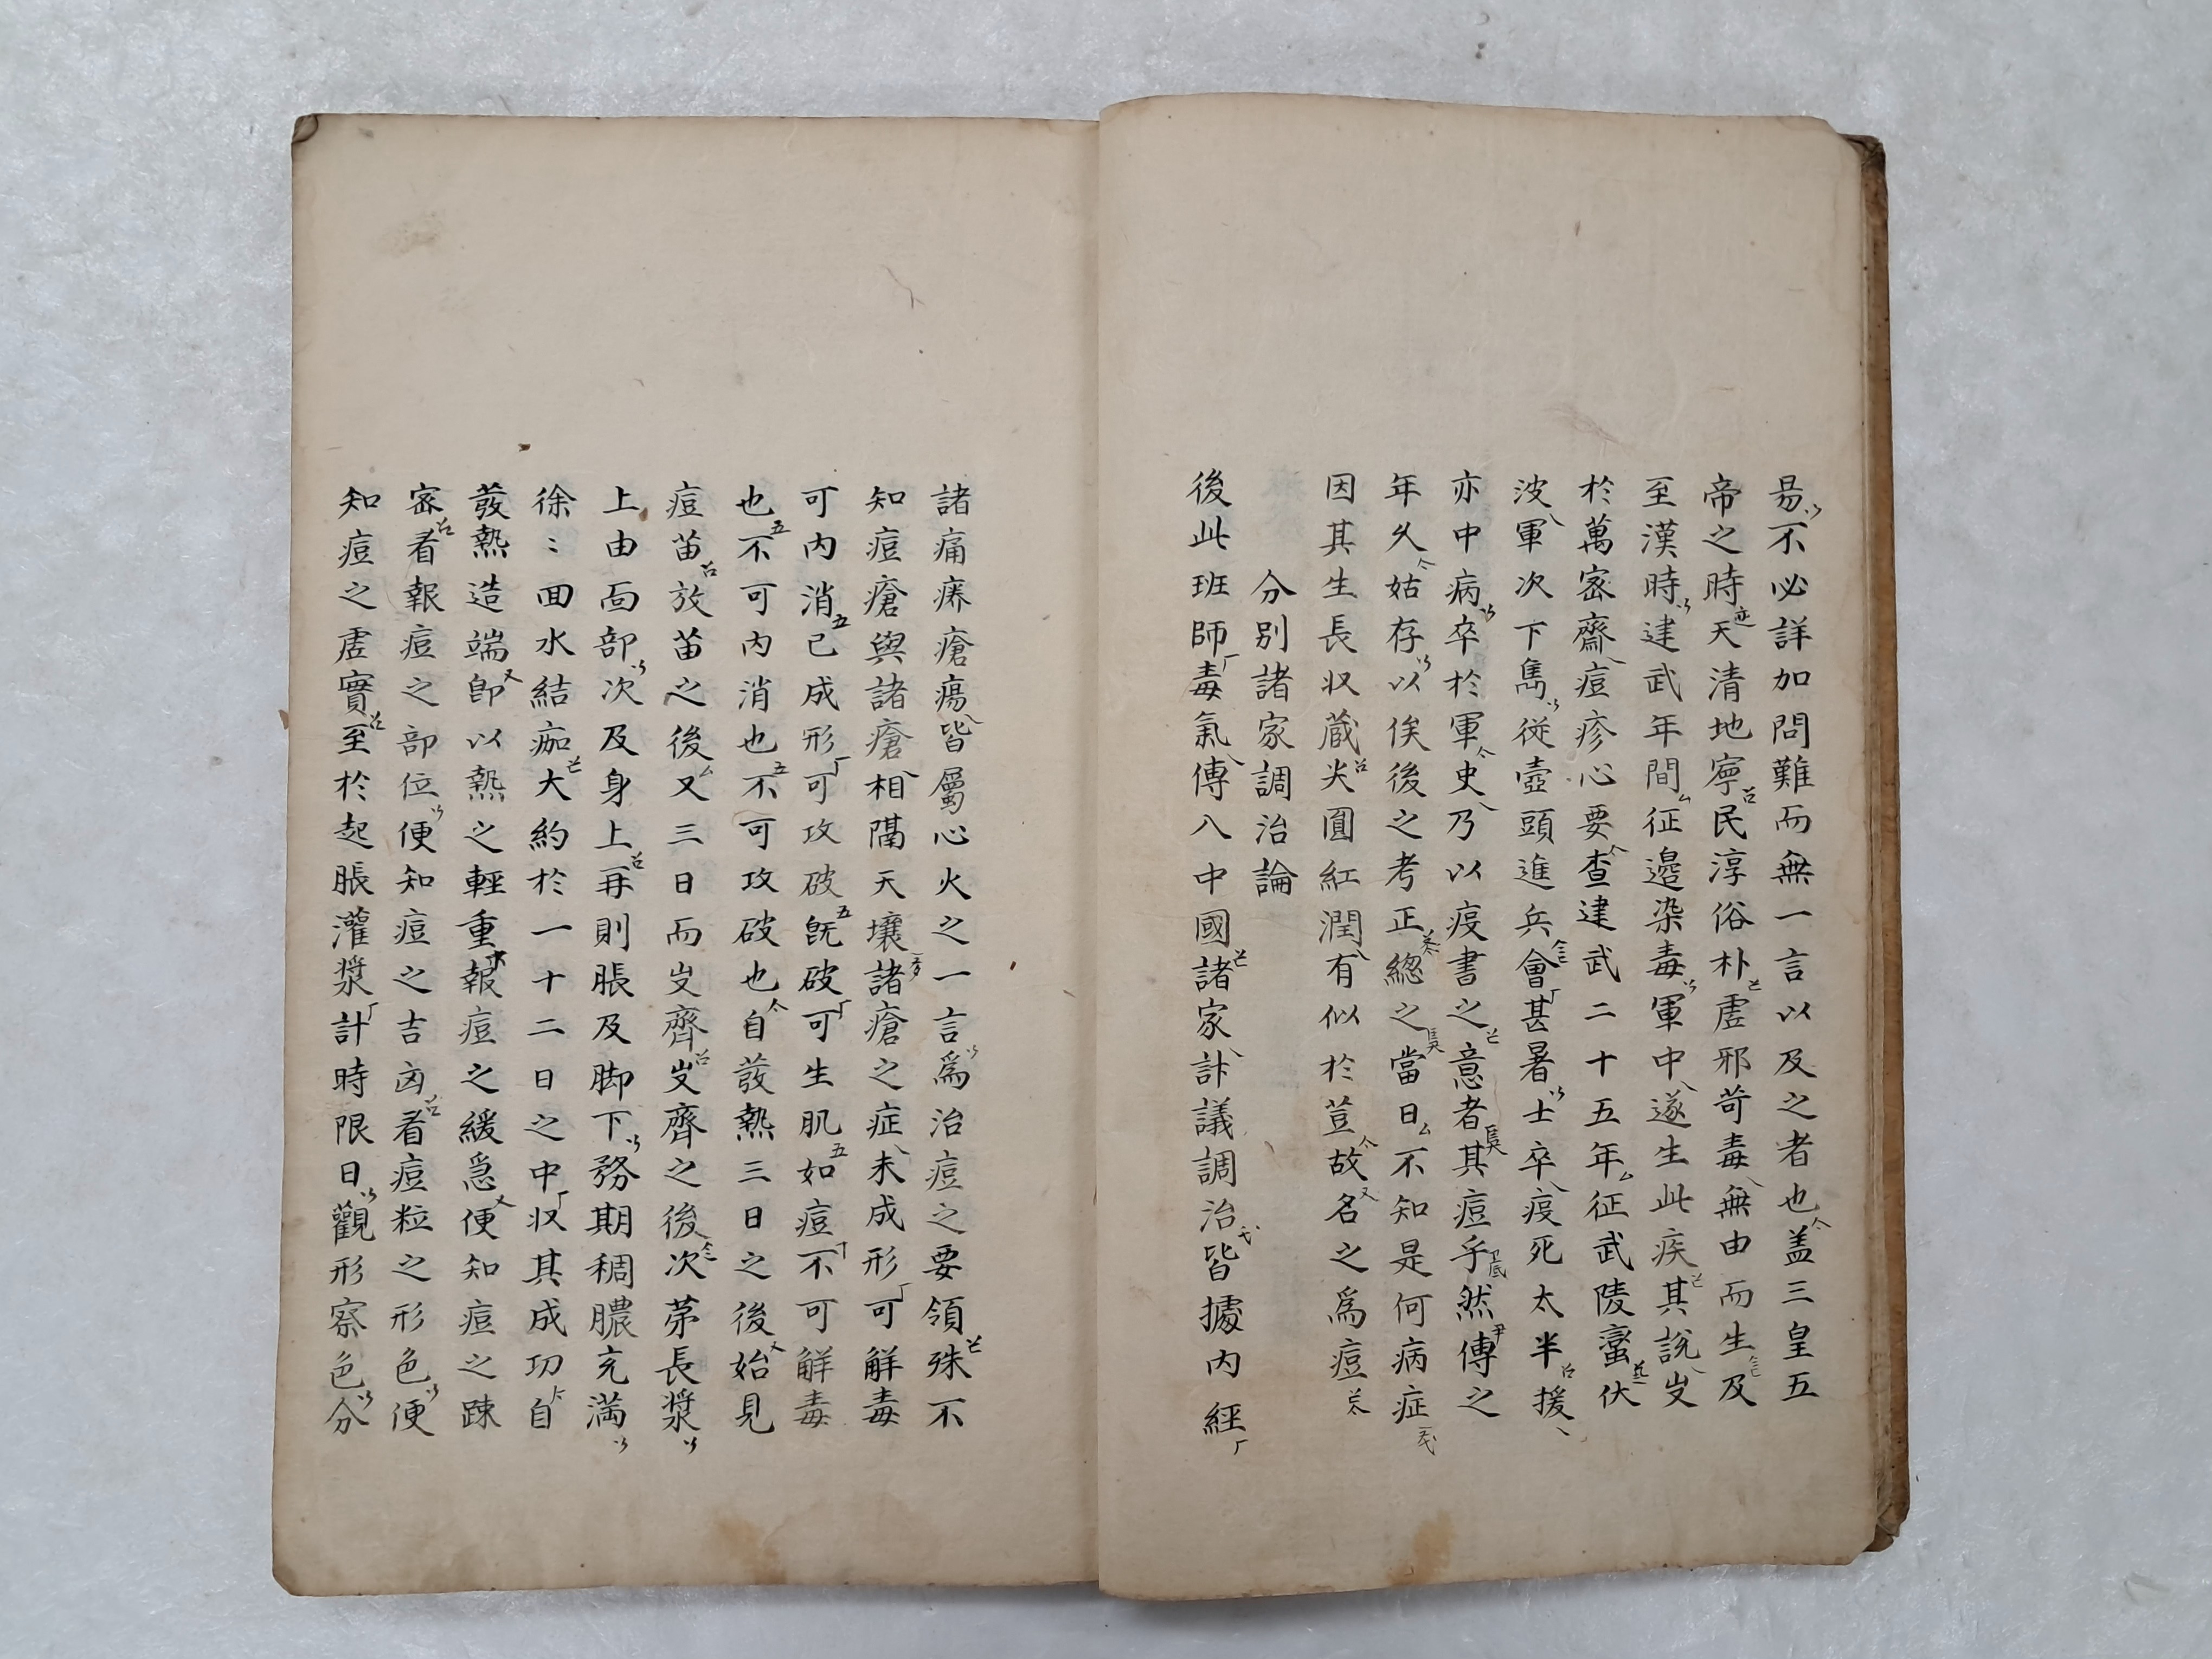 易不必詳加問難而無一言以及之者也盖三皇五
帝之時天清地寧民淳俗朴虗邪苛毒無由而生及
至漢時建武年間征邊染毒軍中遂生此疾其說
於萬宻齋痘疹心要查建武二十五年征武陵蠻伏
波軍次下雋從壺頭進兵會甚暑士卒疫死太半援
亦中病卒於軍史乃以疫書之意者其痘乎然傳之
年久姑存以俟後之考正總之當日不知是何病症
因其生長収蔵尖圓紅潤有似於荳故名之爲痘
分别諸家調治論
後此班師毒氣傳八中國諸家訃議調治皆據内經
諸痛痒瘡瘍皆屬心火之一言爲治痘之要領殊不
知痘瘡與諸瘡相隔天壤諸瘡之症未成形可觧毒
可内消已成形可攻破旣破可生肌如痘不可觧毒
也不可内消也不可攻破也自發熱三日之後始見
痘苗放苗之後又三日而齊齊之後次苐長漿
上由面部次及身上再則脹及脚下務期稠膿充滿
徐〻回水結痂大約於一十二日之中収其成功自
發熱造端即以熱之輕重報痘之緩急便知痘之踈
宻看報痘之部位便知痘之吉凶看痘粒之形色便
知痘之虗實至於起脹灌漿計時限日觀形察色分